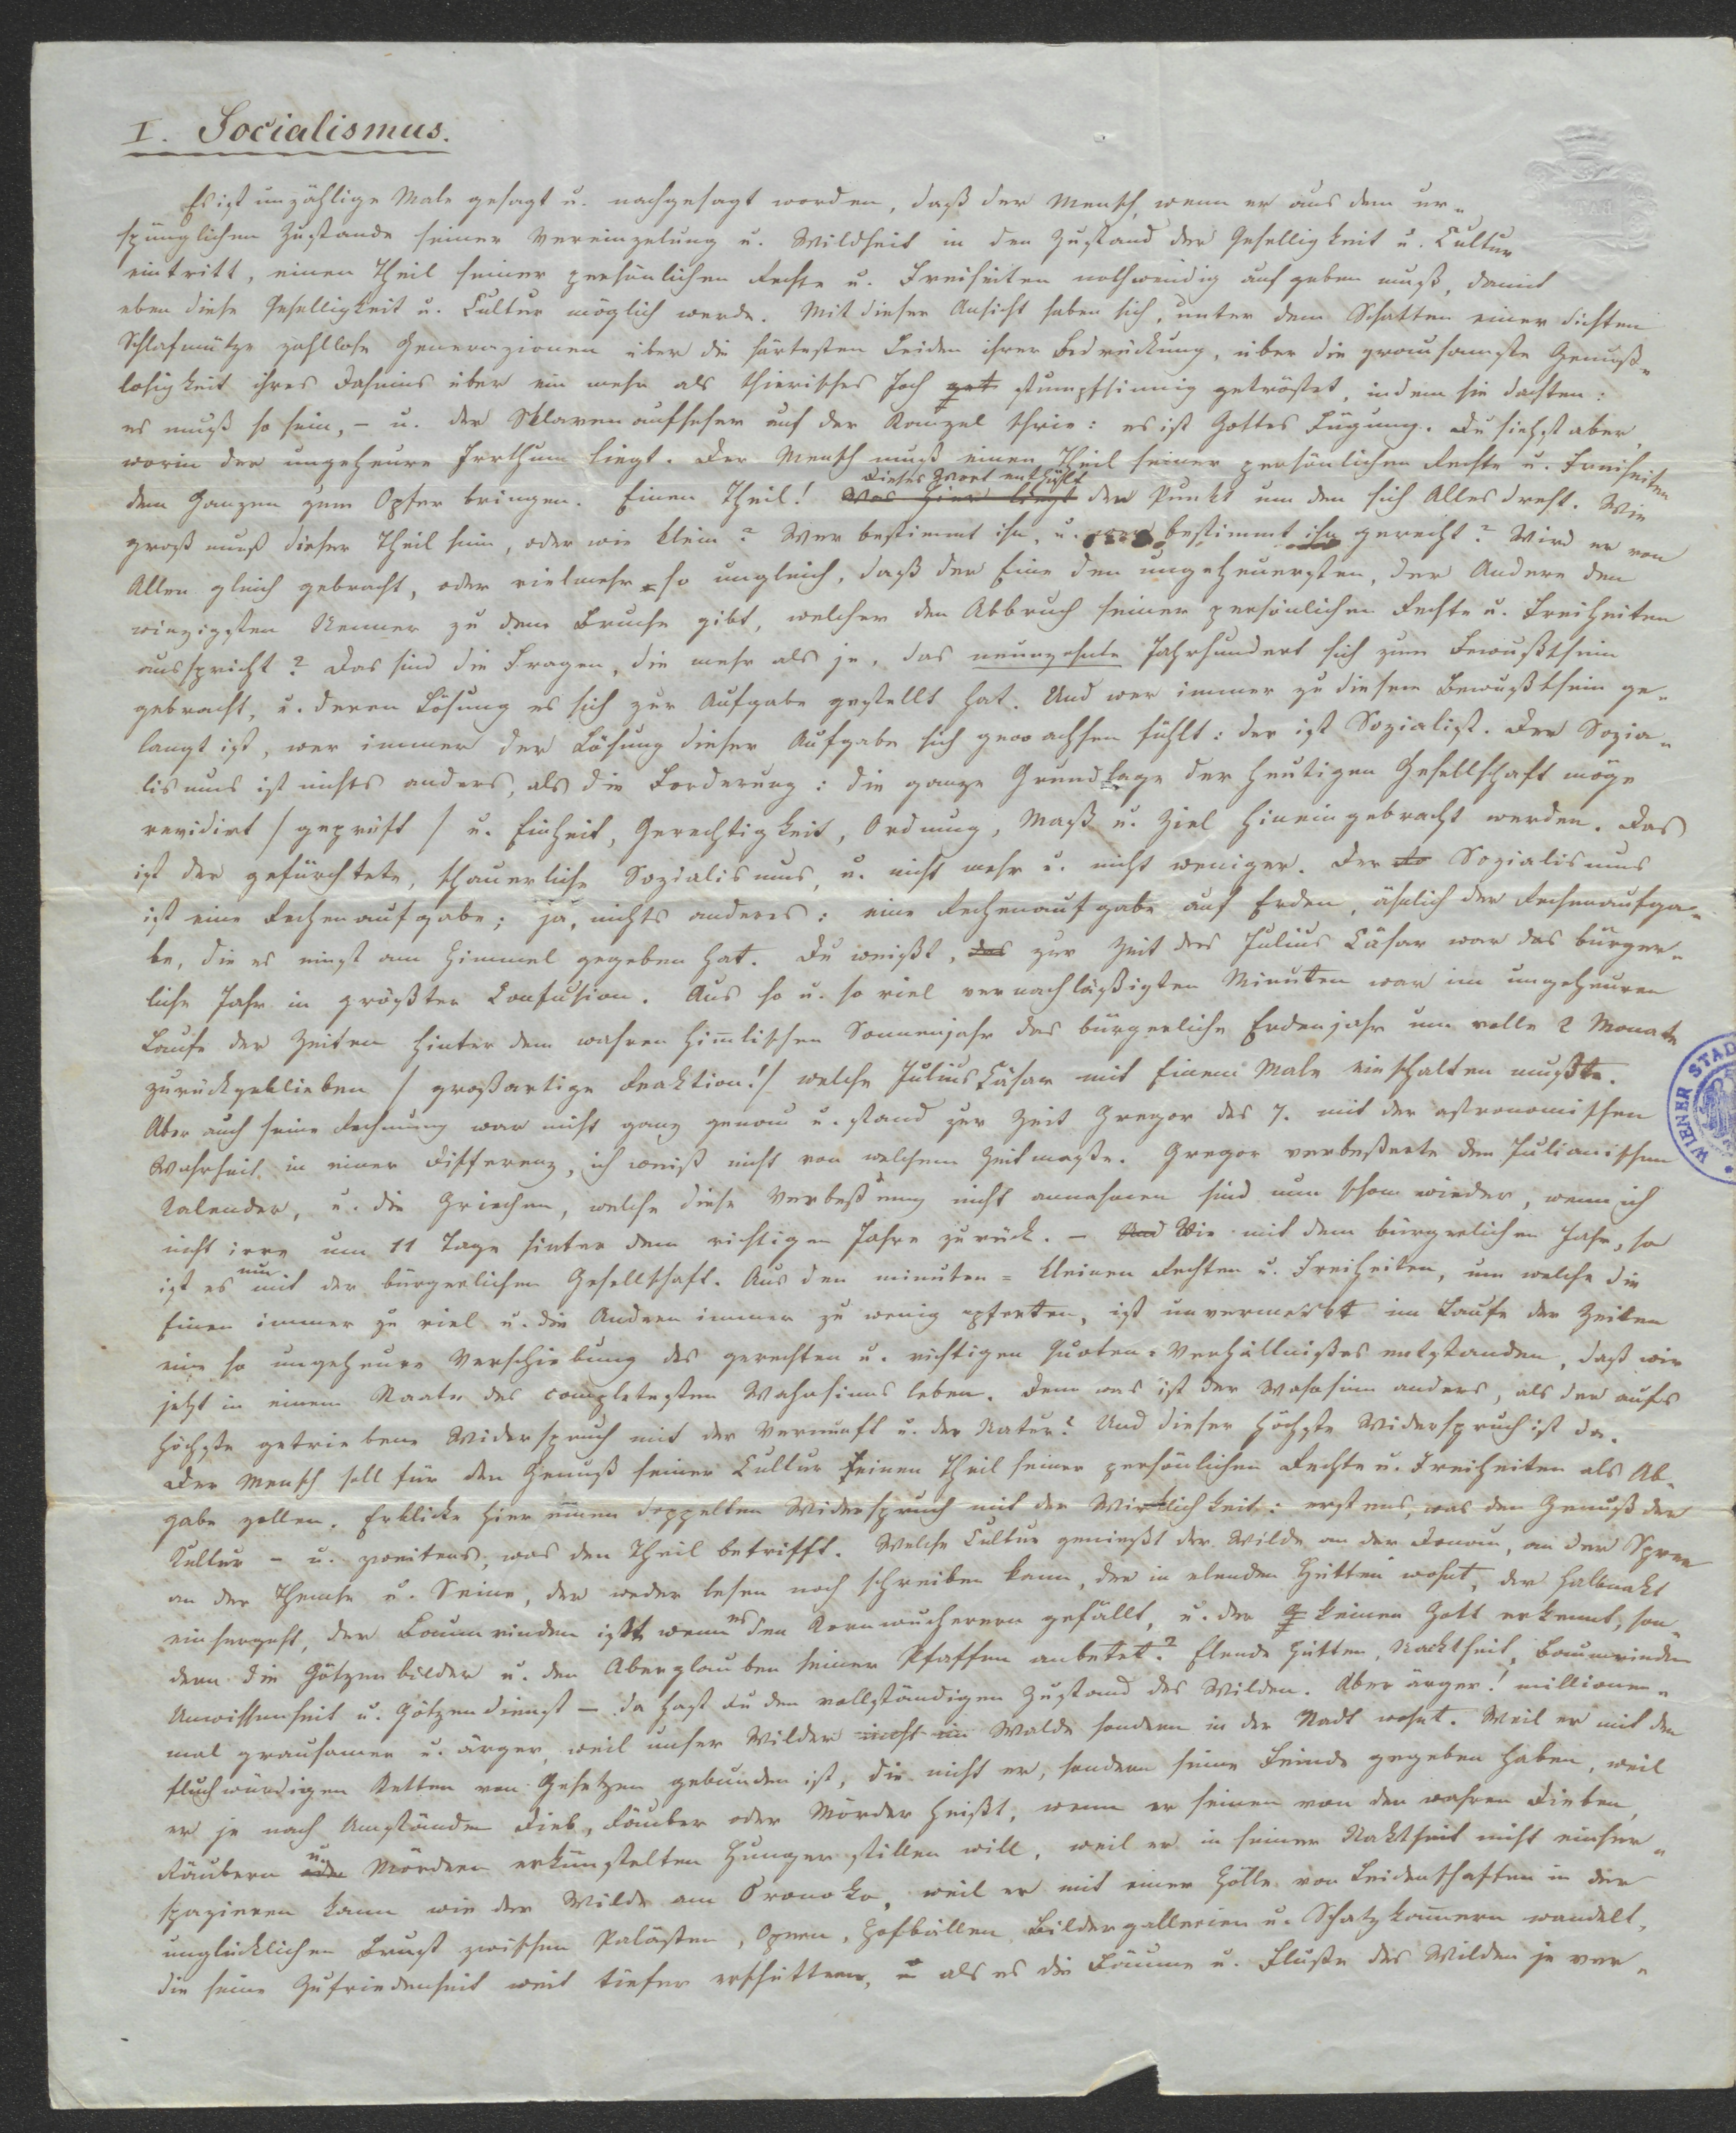 I. Socialismus.
Es ist unzählige Male gesagt u. nachgesagt worden, daß der Mensch, wenn er aus dem ur-
spünglichen Zustande seiner Vereinzelung u. Wildheit in den Zustand der Geselligkeit u. Cultur
eintritt, einen Theil seiner persönlichen Rechte u. Freiheiten nothwendig aufgeben muß, damit
eben diese Geselligkeit u. Cultur möglich werde. Mit dieser Ansicht haben sich, unter dem Schatten einer dichten
Schlafmütze zahllose Generazionen über die härtesten Leiden ihrer Bedrückung, über die grausamste Genuß-
losigkeit ihres Daseins über ein mehr als thierisches Joch get stumpfsinnig getröstet, indem sie dachten:
es muß so sein, – u. der Sklavenaufseher auf der Kanzel schrie: es ist Gottes Fügung. Du siehst aber,
worin der ungeheure Irrthum liegt. Der Mensch muß einen Theil seiner persönlichen Rechte u. Freiheiten
dem Ganzen zum Opfer bringen. Einen Theil! Was hier liegt Dieses Wort enthüllt den Punkt um den sich Alles dreht. Wie
groß muß dieser Theil sein, oder wie klein? Wer bestimmt ihn, u. bestimmt ihn gerecht? Wird er von
Allen gleich gebracht, oder vielmehr so ungleich, daß der Eine den ungeheuersten, der Andere den
winzigsten Nenner zu dem Bruche gibt, welcher den Abbruch seiner persönlichen Rechte u. Freiheiten
ausspricht? Das sind die Fragen, die mehr als je, das neunzehnte Jahrhundert sich zum Bewußtsein
gebracht, u. deren Lösung es sich zur Aufgabe gestellt hat. Und wer immer zu diesem Bewußtsein ge-
langt ist, wer immer der Lösung dieser Aufgabe sich gewachsen fühlt: der ist Sozialist. Der Sozia-
lismus ist nichts anders, als die Forderung: die ganze Grundlage der heutigen Gesellschaft möge
revidirt / geprüft / u. Einheit, Gerechtigkeit, Ordnung, Maß u. Ziel hineingebracht werden. Das
ist der gefürchtete, schauerliche Sozialismus, u. nicht mehr u. nicht weniger. Der So Sozialismus
ist eine Rechenaufgabe; ja, nichts anderes: eine Rechenaufgabe auf Erden, ähnlich der Rechenaufga-
be, die es einst am Himmel gegeben hat. Du weißt, das zur Zeit des Julius Cäsar war das bürger-
liche Jahr in größter Confusion. Aus so u. so viel vernachläßigten Minuten war im ungeheuren
Laufe der Zeiten hinter dem wahren himlischen Sonnenjahr das bürgerliche Erdenjahr um volle 2 Monate
zurückgeblieben / großartige Reaktion! / welche Julius Cäsar mit Einem Male einschalten mußte.
Aber auch seine Rechnung war nicht ganz genau u. stand zur Zeit Gregor des 7. mit der astronomischen
Wahrheit in einer Differenz, ich weiß nicht von welchem Zeitmaße. Gregor verbeßerte den Julianischen
Kalender, u. die Griechen, welche diese Verbeßrung nicht annahmen sind nun schon wieder, wenn ich
nicht irre um 11 Tage hinter dem richtigen Jahre zurück. – Und Wie mit dem bürgerlichen Jahr, so
ist es nun mit der bürgerlichen Gesellschaft. Aus den minuten=kleinen Rechten u. Freiheiten, um welche die
Einen immer zu viel u. die Andren immer zu wenig opferten, ist unvermerkt im Laufe der Zeiten
eine so ungeheure Verschiebung des gerechten u. richtigen Quoten-Verhältnißes entstanden, daß wir
jetzt in einem Staate des completesten Wahnsinns leben. Denn was ist der Wahnsinn anders, als der aufs
höchste getriebene Widerspruch mit der Vernunft u. der Natur? Und dieser höchste Widerspruch ist da.
Der Mensch soll für den Genuß seiner Cultur einen Theil seiner persönlichen Rechte u. Freiheiten als Ab-
gabe zollen. Erblicke hier einen doppelten Widerspruch mit der Wirklichkeit: erstens, was den Genuß der
Kultur – u. zweitens, was den Theil betrifft. Welche Cultur genießt der Wilde an der Donau, an der Spree
an der Themse u. Seine, der weder lesen noch schreiben kann, der in elenden Hütten wohnt, der halbnakt
einhergeht, der Baumrinden ißt wenn es den Kornwucherern gefällt, u. der keinen Gott erkennt, son-
dern die Götzenbilder u. den Aberglauben seiner Pfaffen anbetet? Elende Hütten, Nacktheit, Baumrinden
Unwissenheit u. Götzendienst – da hast du den vollständigen Zustand des Wilden. Aber ärger! millionen-
mal grausamer u. ärger, weil unser Wilder nicht im Walde sondern in der Stadt wohnt. Weil er mit den
fluchwürdigen Ketten von Gesetzen gebunden ist, die nicht er, sondern seine Feinde gegeben haben, weil
er je nach Umständen Dieb, Räuber oder Mörder heißt, wenn er seinen von den wahren Dieben,
Räubern oder u. Mördern erkünstelten Hunger stillen will, weil er in seiner Naktheit nicht einher-
spazieren kann wie der Wilde am Oronoko, weil er mit einer Hölle von Leidenschaften in der
unglücklichen Brust zwischen Palästen, Opern, Hofbällen, Bildergallerien u. Schatzkamern wandelt,
die seine Zufriedenheit weit tiefer erschüttern, als es die Bäume u. Fluße des Wilden je ver-
WIENER STAD